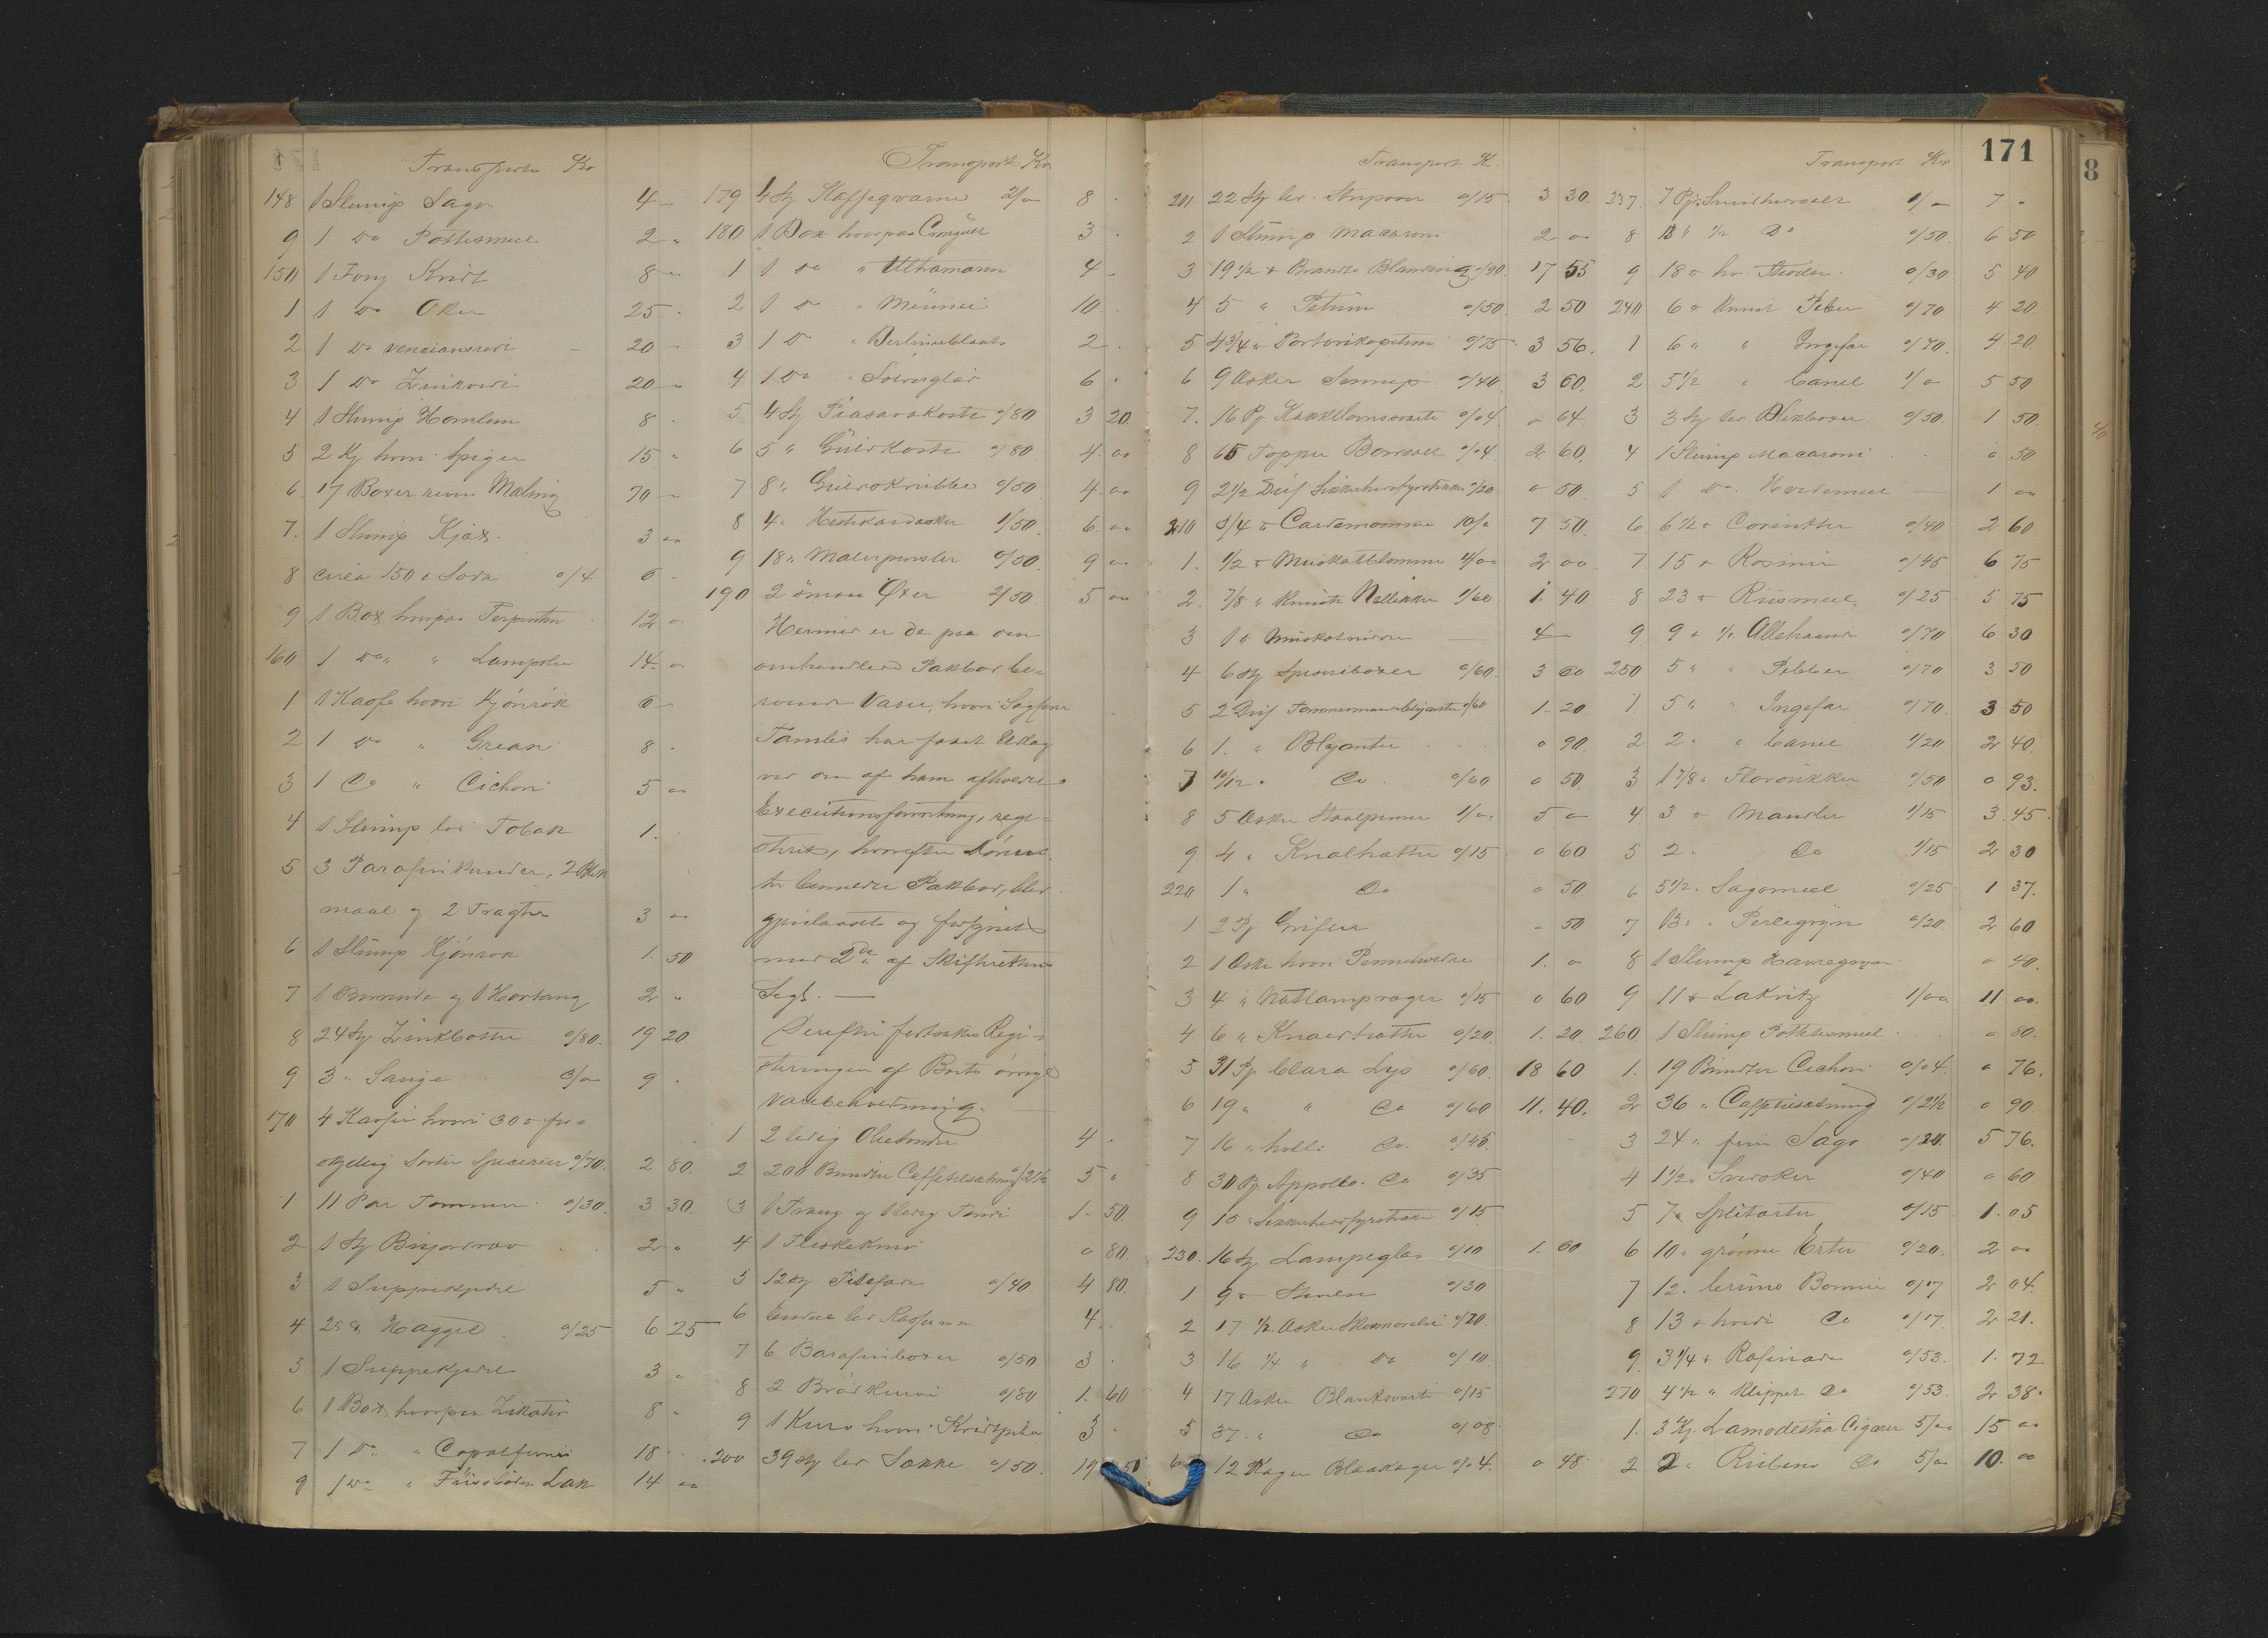 Transport Kr
148 1 Slump Sago 4 –
9 1 do Pottesmeel 2 "
150 1 Tong Kridt 8 –
1 1 do Oker 25 .
2 1 do – 20 –
3 1 do Zinkvidt 20 –
4 1 Slump 8 .
5 2 Kg hvori Spiger 15 "
6 17 Boxer reven Maling 70 –
7. 1 Slump Kjæx. 3 oo
8 circa 150 Soda o/4 6 .
9 1 Box hvorpaa Terpentin 12 o
160 1 do " Lampolie 14. oo
1 1 Kasse hvori Kjönrök 6 –
2 1 do " 8 .
3 1 Do " Cichori 5 oo
4 1 Slump lös Tobak 1.
5 3 Parafinkander, 2 Blik
maal og 2 Tragter 3 oo
6 1 Slump Kjönrøk 1. 50
7 1 og 1 2 "
8 24 Stk Zinkbøtter o/80. 19 20.
9 3 " Sauge 3/oo 9 .
170 4 Kasser hvori 30 for-
skjellig Sorter Specerier o/70. 2 80.
1 11 Par Tommer o/30. 3 30.
2 1 Stk 2 o
3 1 Suppekjedel 5 "
4 25 Haggel o/25 6 25
5 1 Suppekjedel 3 "
6 1 Box hvorpaa Zikativ 8 "
7 1 do " Copalfernis 18 .
9 1 do " Lak 14 oo
Transport Kr
179 4 Stk Kaffeqvarne 2/oo 8 .
180 1 Box hvorpaa 3 .
1 1 do " Ultramarin 4 –
2 1 do " Mönnie 10 .
3 1 Do " Berlinerblaat 2 .
4 1 Do " Sölverglød 6 .
5 4 Stk Piasavakoste o/80 3 20.
6 5 " Gulvkoste o/80 4. oo
7 8 " Gulvskrubbe o/50 4. oo
8 4 " Hestekardasker 1/50. 6 oo
9 18 " Malerpensler o/50. 9 oo
190 2 smaa Øxer 2/50. 5 oo
Hermed er de paa den
omhandlede Pakbod be-
roende Varer, hvori Sagfører
har faaet Udlæg
ved den af ham afholdte
Executionsforretning, regi-
streret, hvorefter Dören
til bemeldte Pakbod, blev
gjenlaaset og forsynet
med 2de af Skifterettens
Segl. –
Derefter fortsattes Regi-
streringen af Boets övrige
Varebeholdning. –
1 2 ledig Olietønder 4 .
2 200 Bundter Caffetilsætning o/2 1/2 5 "
3 1 Trang og 1 ledig Tønde 1 – 50.
4 1 Fleskekniv o 80.
5 12 Stk o/40 4 80.
6 Endel led Kasser 4.
7 6 Parafinboxer o/50 3 .
8 2 Brödkurve o/80 1. 60
9 1 Kurv hvori Kridtpiber 3 .
200 39 Stk led Sække o/50. 19 50
Transport K.
201 22 Stk led. o/15 3 30.
2 1 Slump Macaroni 2 oo
3 19 1/2 Brandt Blanding o/90. 17 55
4 5 " Petum o/50. 2 50
5 4 3/4 Portorikopetum o/75 3 56.
6 9 Æsker Sennep o/40. 3 60.
7. 16 Pj Kakkelovnsværte o/o4 o 64.
8 65 Topper o/o4 2 60.
9 2 1/2 Dus Sikkerhedsfyrstikker o/20 o 50.
210 3/4 Cardemomme 10/o 7 50.
1. 1/2 Muskatblomme 4/oo 2 oo.
2. 7/8 " Knuste Nelliker 1/60 1. 40
3 1 Muskatnödder – 4 –
4 6 Stk Specieriboxer o/60. 3 60
5 2 Dus Tømmermandsblyanter o/60 1 – 20.
6 1. " Blyanter o 90.
7 10/12 " Do o/60 o 50.
8 5 Æsker Staalpenner 1/oo. 5 o
9 4 " Knalhætter o/15 o 60
220 1 " Do o 50
1 2 Pj Grifler – 50
2 1 Æske hvori Penneholdre 1. o
3 4 " Natlampvæger o/15 o 60
4 6 " Knaldhætter o/20. 1. 20.
5 31 Pj Clara Lys o/60. 18 60
6 19 " " Do o/60 11. 40.
7 16 " Do. o/45.
8 30 Pj Appollo Do o/35
9 10 " Sikkerhedsfyrstikker o/15
230. 16 Stk Lampeglas o/10 1. 60
1 9 Stivelse o/30
2 17 1/2 Æsker o/20.
3 16 1/4 " do o/10.
4 17 Æsker Blanksværte o/15
5 37. " Do o/08.
6 12 Kager Blaakager o/o4. o 48.
Transport Kr
171
237. 7 Pj. 1/– 7 –
8 13 " 1/2 Do o/50. 6 50
9 18 o/30 5 40
240 6 Knust Peber o/70 4 20
1 6 " " Ingefær o/70. 4 20.
2 5 1/2 " Canel 1/o 5 50
3 3 Stk led Blikboxer o/50. 1 50.
4 1 Slump Macaroni o 50
5 1 do. Hvedemeel 1 oo
6. 6 1/2 Corinther o/40 2 60
7 15 Rosiner o/45 6 75
8 23 Riismeel. o/25 5 75
9 9 1/1 Allehaande o/70 6 30
250 5 " " Pebber o/70 3 50
1. 5 " " Ingefær o/70. 3 50
2 2 " " Canel 1/20 2 40.
3 1 7/8 " o/50 o 93.
4 3 Mandler 1/15 3. 45.
5 2 " Do 1/15 2 30
6 5 1/2. Sagomeel o/25 1 37.
7 13 " Perlegryn o/20. 2 60
8 1 Slump Havregryn o 40.
9 11 Lakritz 1/oo 11 oo.
260 1 Slump Pottesmeel o 80.
1. 19 Bundter Cichori o/o4. o 76.
2 36 " Caffetilsætning o/2 1/2 o 90
3 24 " fiin Sago o/24. 5 76.
4 1 1/2 " Svedsker o/40 o 60
5 7 Spliterter o/15 1. 05
6 10 " grønne Erter o/20. 2 oo
7 12 " brune Bønner o/17 2 04.
8 13 hvide Do o/17. 2 21.
9. 3 1/4 Rafinade o/53. 1. 72
270 4 1/2 " Klippet Do o/53. 2 38.
1. 3 Ks. Lamodestia Cigarer 5/oo 15 oo
2 2 " Rubens Do 5/oo 10. oo
8